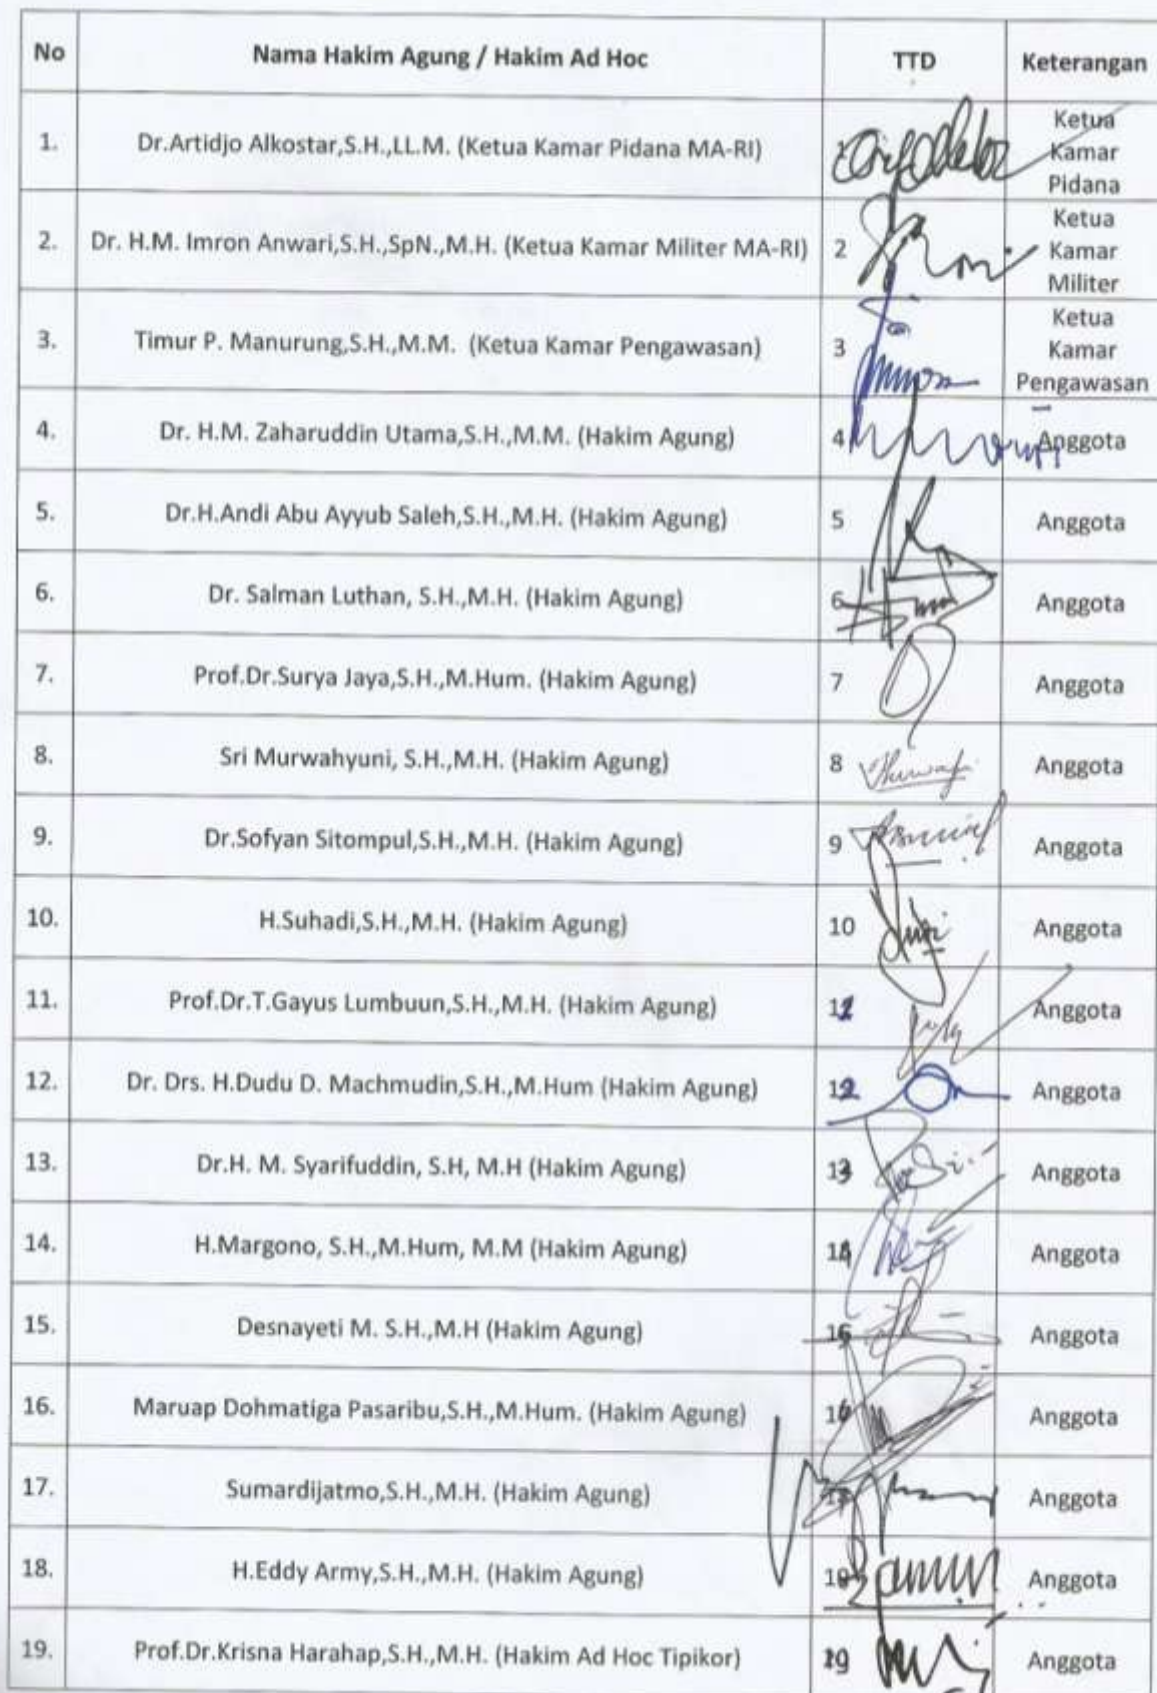 No Nama Hakim Agung / Hakim Ad Hoc TTD Keterangan
1. Dr.Artidjo Alkostar,S.H.,LL.M. (Ketua Kamar Pidana MA-RI) 1 Ketua Kamar Pidana
2. Dr. H.M. Imron Anwari,S.H.,SpN.,M.H. (Ketua Kamar Militer MA-RI) 2 Ketua Kamar Militer
3. Timur P. Manurung,S.H.,M.M. (Ketua Kamar Pengawasan) 3 Ketua Kamar Pengawasan
4. Dr. H.M. Zaharuddin Utama,S.H.,M.M. (Hakim Agung) 4 Anggota
5. Dr.H.Andi Abu Ayyub Saleh,S.H.,M.H. (Hakim Agung) 5 Anggota
6. Dr. Salman Luthan, S.H.,M.H. (Hakim Agung) 6 Anggota
7. Prof.Dr.Surya Jaya,S.H.,M.Hum. (Hakim Agung) 7 Anggota
8. Sri Murwahyuni, S.H.,M.H. (Hakim Agung) 8 Anggota
9. Dr.Sofyan Sitompul,S.H.,M.H. (Hakim Agung) 9 Anggota
10. H.Suhadi,S.H.,M.H. (Hakim Agung) 10 Anggota
11. Prof.Dr.T.Gayus Lumbuun,S.H.,M.H. (Hakim Agung) 11 Anggota
12. Dr. Drs. H.Dudu D. Machmudin,S.H.,M.Hum (Hakim Agung) 12 Anggota
13. Dr.H. M. Syarifuddin, S.H, M.H (Hakim Agung) 13 Anggota
14. H.Margono, S.H.,M.Hum, M.M (Hakim Agung) 14 Anggota
15. Desnayeti M. S.H.,M.H (Hakim Agung) 15 Anggota
16. Maruap Dohmatiga Pasaribu,S.H.,M.Hum. (Hakim Agung) 16 Anggota
17. Sumardijatmo,S.H.,M.H. (Hakim Agung) 17 Anggota
18. H.Eddy Army,S.H.,M.H. (Hakim Agung) 18 Anggota
19. Prof.Dr.Krisna Harahap,S.H.,M.H. (Hakim Ad Hoc Tipikor) 19 Anggota